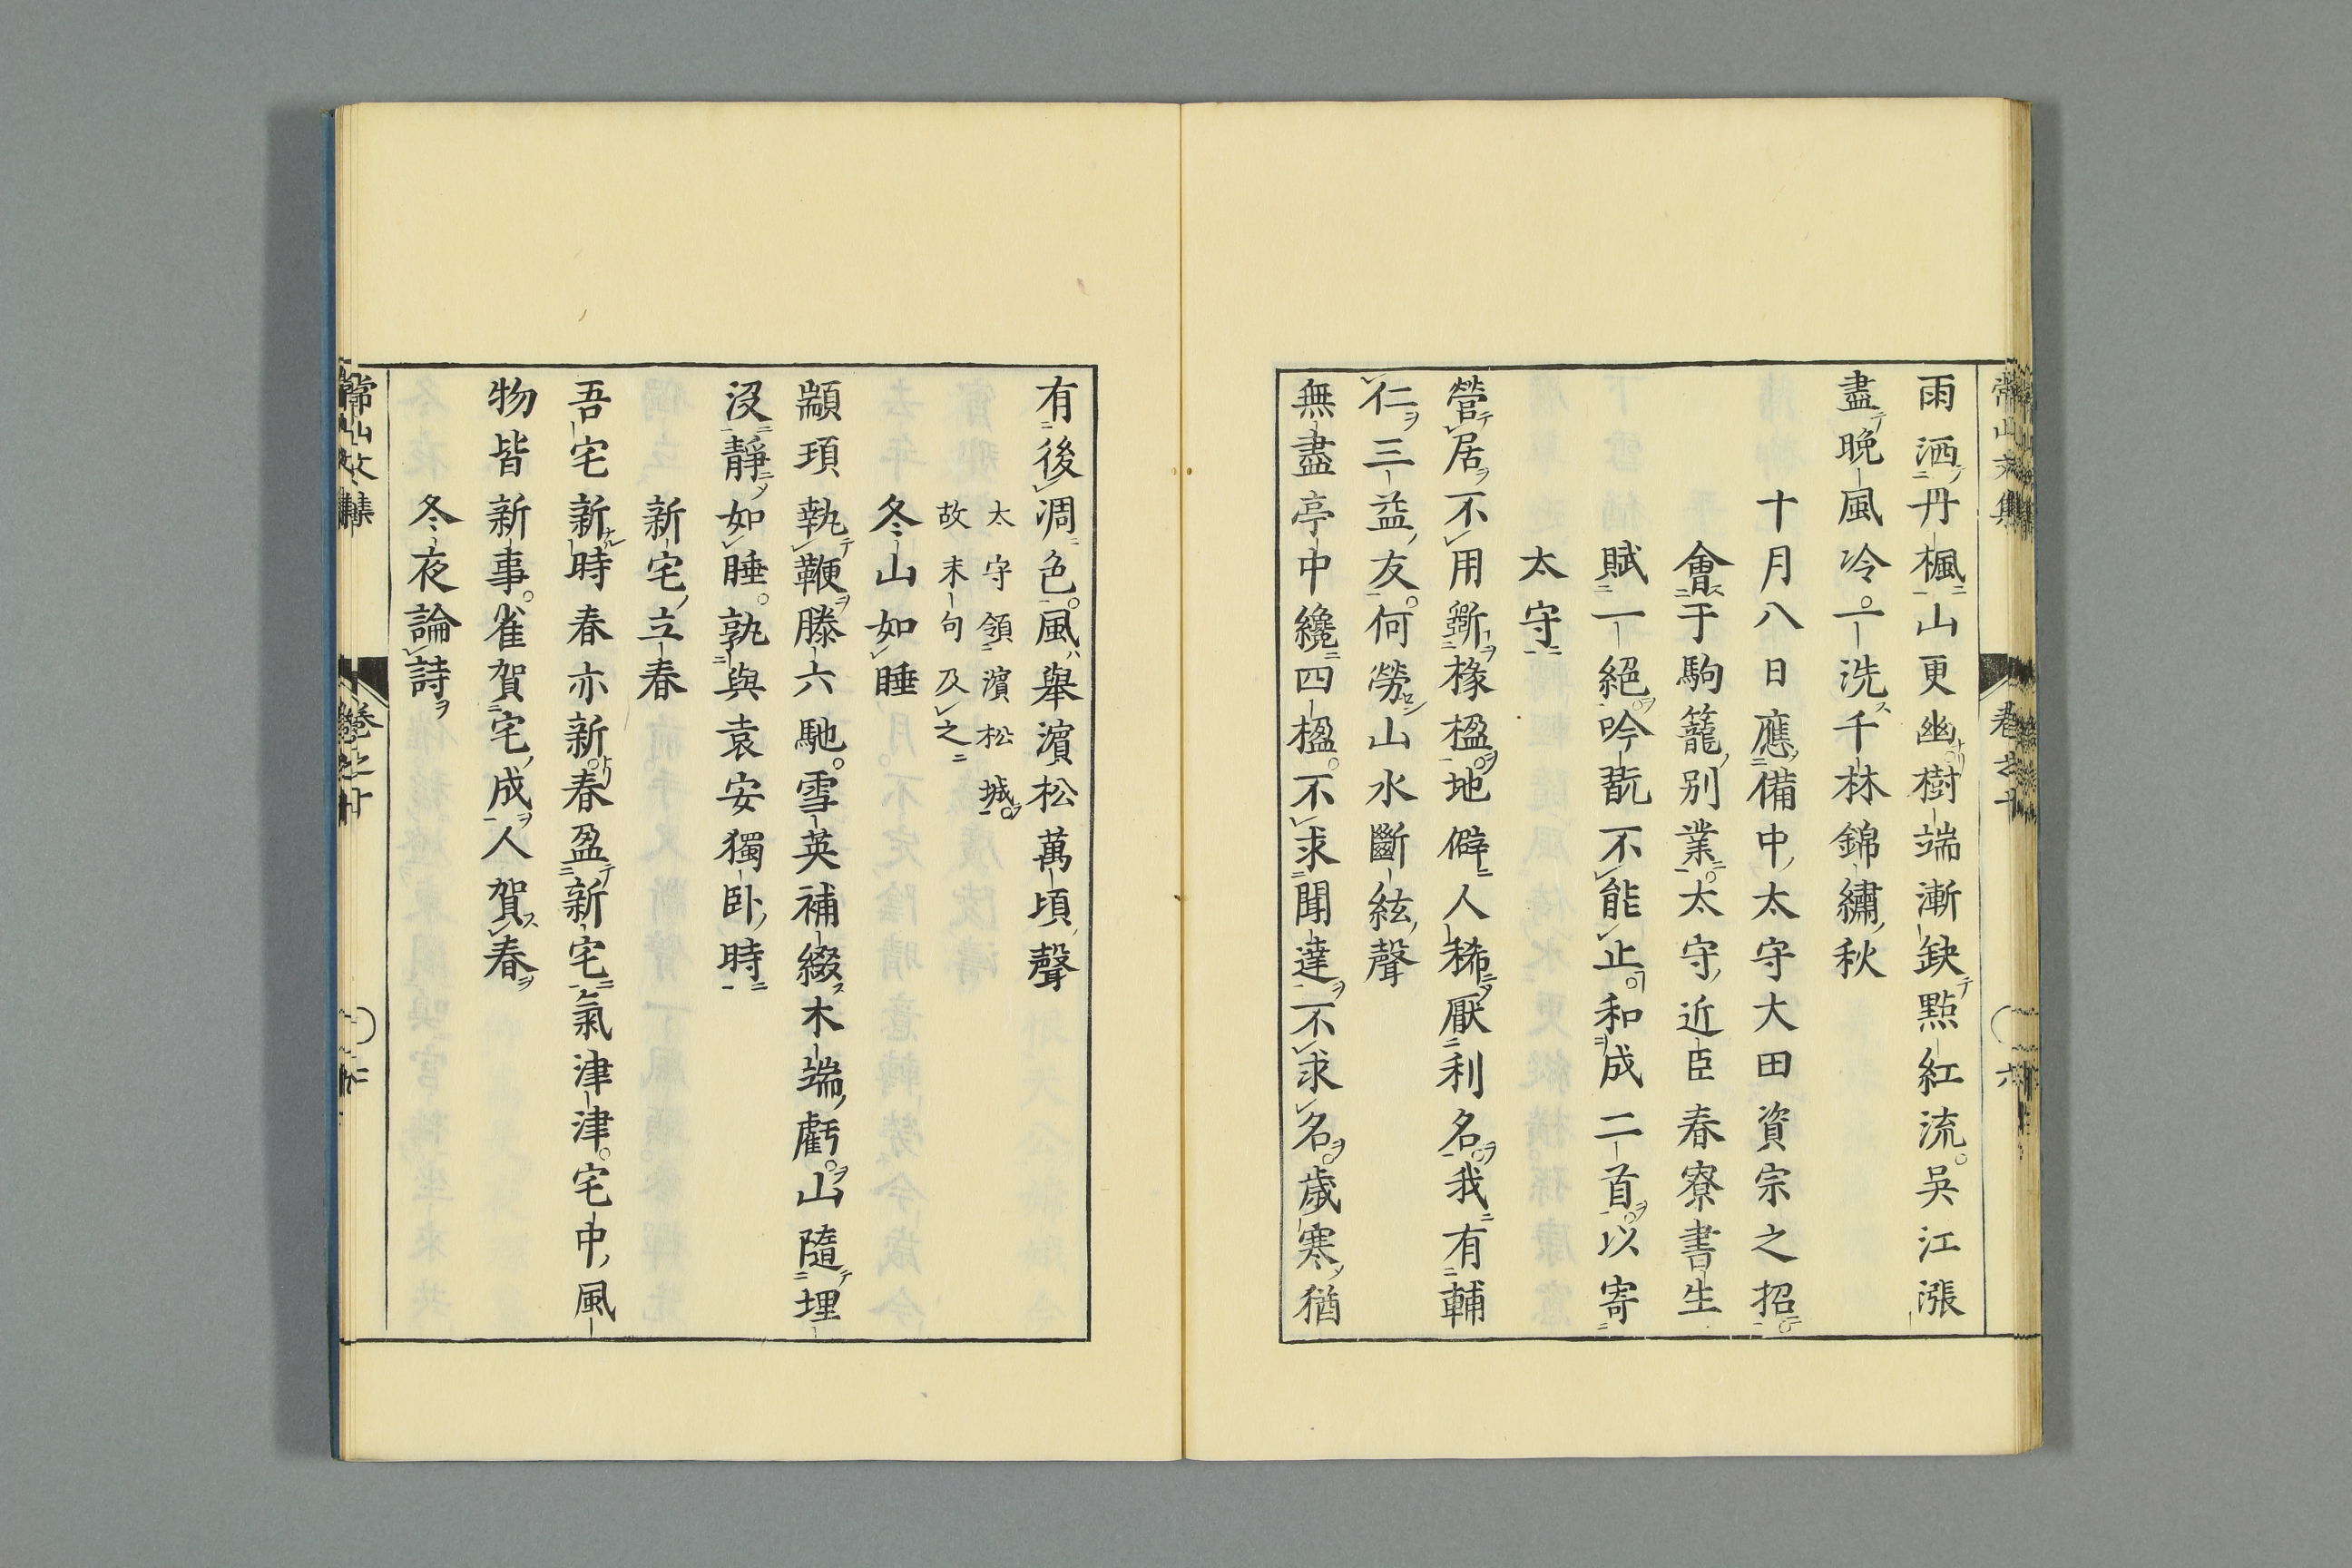 雨洒丹楓山更幽樹端漸缺點紅流。吳江漲
盡晚風冷。一洗千林錦繡秋
十月八日應備中太守大田資宗之招
會于駒籠別業。太守近臣春寮書生
賦一絕。吟翫不能止。和成二首。以寄
太守
營居不用斲椽楹。地僻人稀厭利名。我有輔
仁三益友。何勞山水斷絃聲
無盡亭中纔四楹。不求聞達不求名。歲寒猶
有後凋色。風舉濵松萬頃聲
太守領濵松城。
故末句及之
冬山如睡
顓頊執鞭滕六馳。雪英補綴木端虧。山隨埋
沒靜如睡。孰與袁安獨臥時
新宅立春
吾宅新時春亦新。春盈新宅氣津津。宅中風
物皆新事。雀賀宅成人賀春
冬夜論詩
常山文集
卷之十
六